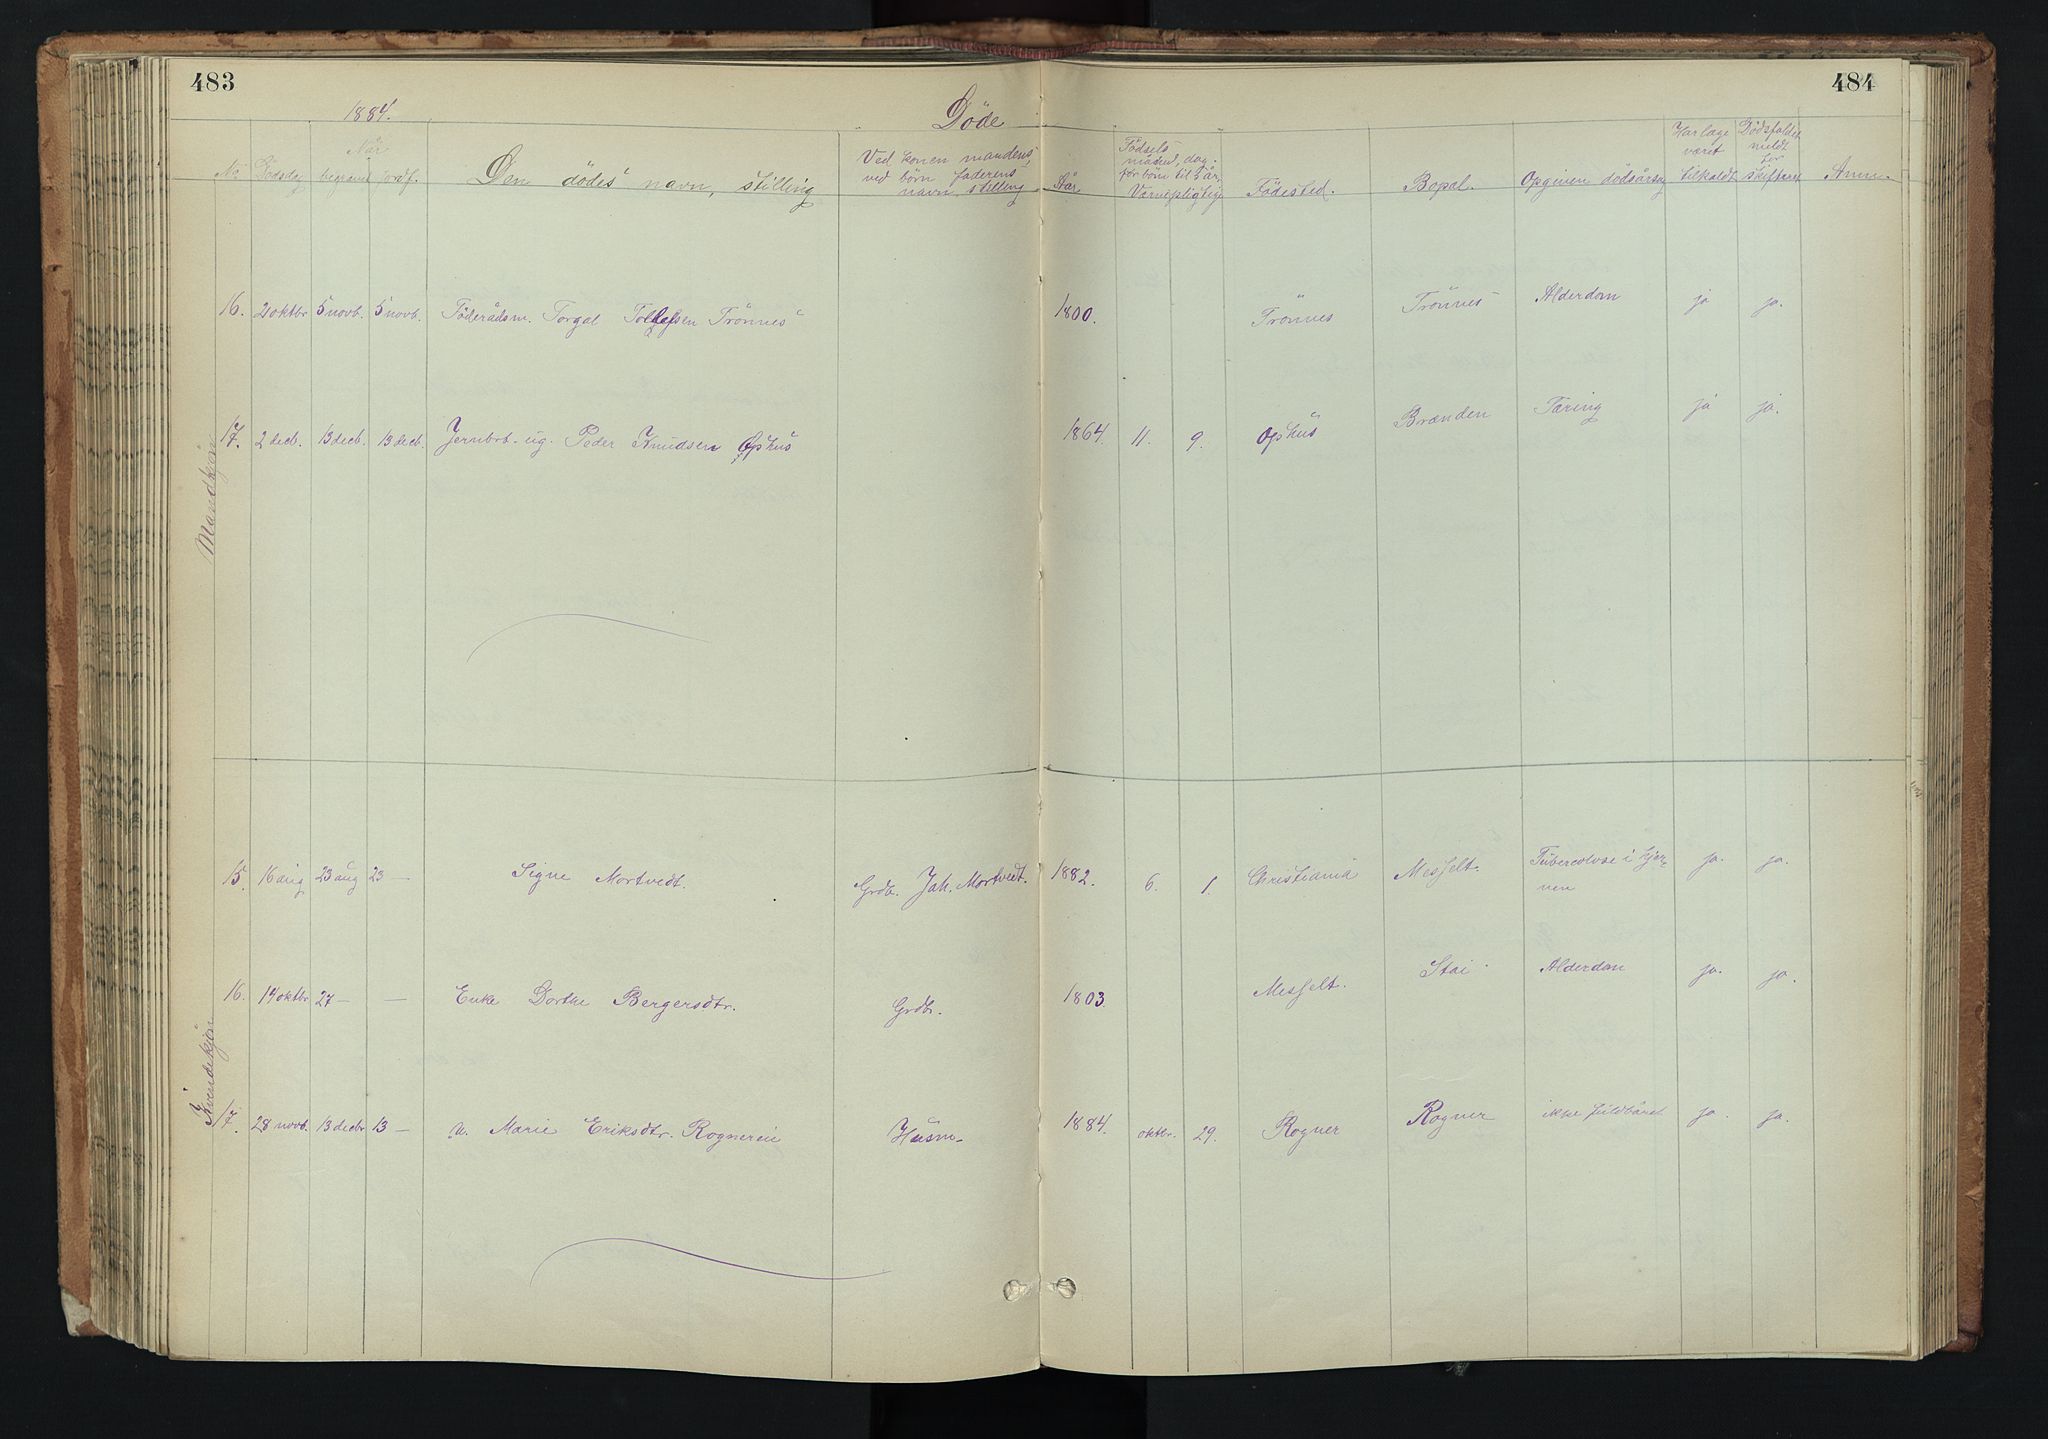 483
484
1884.
Döde
No
Dödsdag
Når
begravet
jordf.
Den dödes navn, stilling
Ved konen mandens,
ved börn faderens
navn, stilling
Aar
Födsels
måned, dag.
for börn til 5 år.
Værnepligtige
Födested.
Bopæl.
Opgiven dödsårsag
Har læge
været
tilkaldt
Dödsfaldet
meldt
for
skifteret
Anm.
Mandkjön
16. 2 oktbr 5 novb. 5 novb. Föderådsm. Torgal Tollefsen Trönnes 1800. Trönnes Trönnes Alderdom ja ja.
17. 2 decb. 13 decb. 13 decb. Jernbrb. ug. Peder Knudsen Ophus 1864. 11. 9. Ophus Brænden Tæring ja ja.
Kvindekjön
15. 16 aug 23 aug 23 — Signe Mortvedt. Grdb. Joh. Mortvedt. 1882. 6. 1. Christiania Messelt. Tuberculose i hjer-
nen ja. ja.
16. 14 oktbr 27 — — Enke Dorthe Bergersdtr. Grdbr. 1803. Messelt. Stai. Alderdom ja. ja.
17. 28 novb. 13 decbr 13 — u. Marie Eriksdtr. Rogнereie Husm. 1884. oktbr. 29. Rogner Rogner ikke fuldbåret ja. ja.